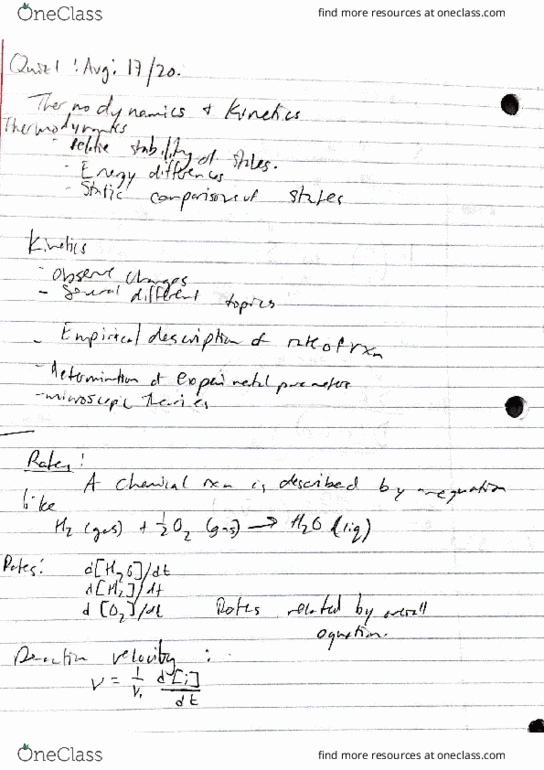 OneClass
find more resources at oneclass.com
Quiz 1 : Aug: 17/20.
Thermodynamics + Kinetics
Thermodynamics
- relative stability of states.
- Energy differences
- Static comparison of states
Kinetics
- observe changes
- Several different topics
- Empirical description of rate of rxn
- determination of experimental parameters
- microscopic theories
Rates:
A chemical rxn is described by an equation
like
H₂ (gas) + ½O₂ (gas) → H₂O (liq)
Rates: d[H₂O]/dt
d[H₂]/dt
d[O₂]/dt Rates related by overall
equation.
Reaction velocity :
V = 1/Vᵢ d[i]/dt
OneClass
find more resources at oneclass.com